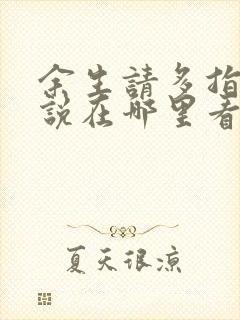 余生請多指
說在哪里看
夏天很涼